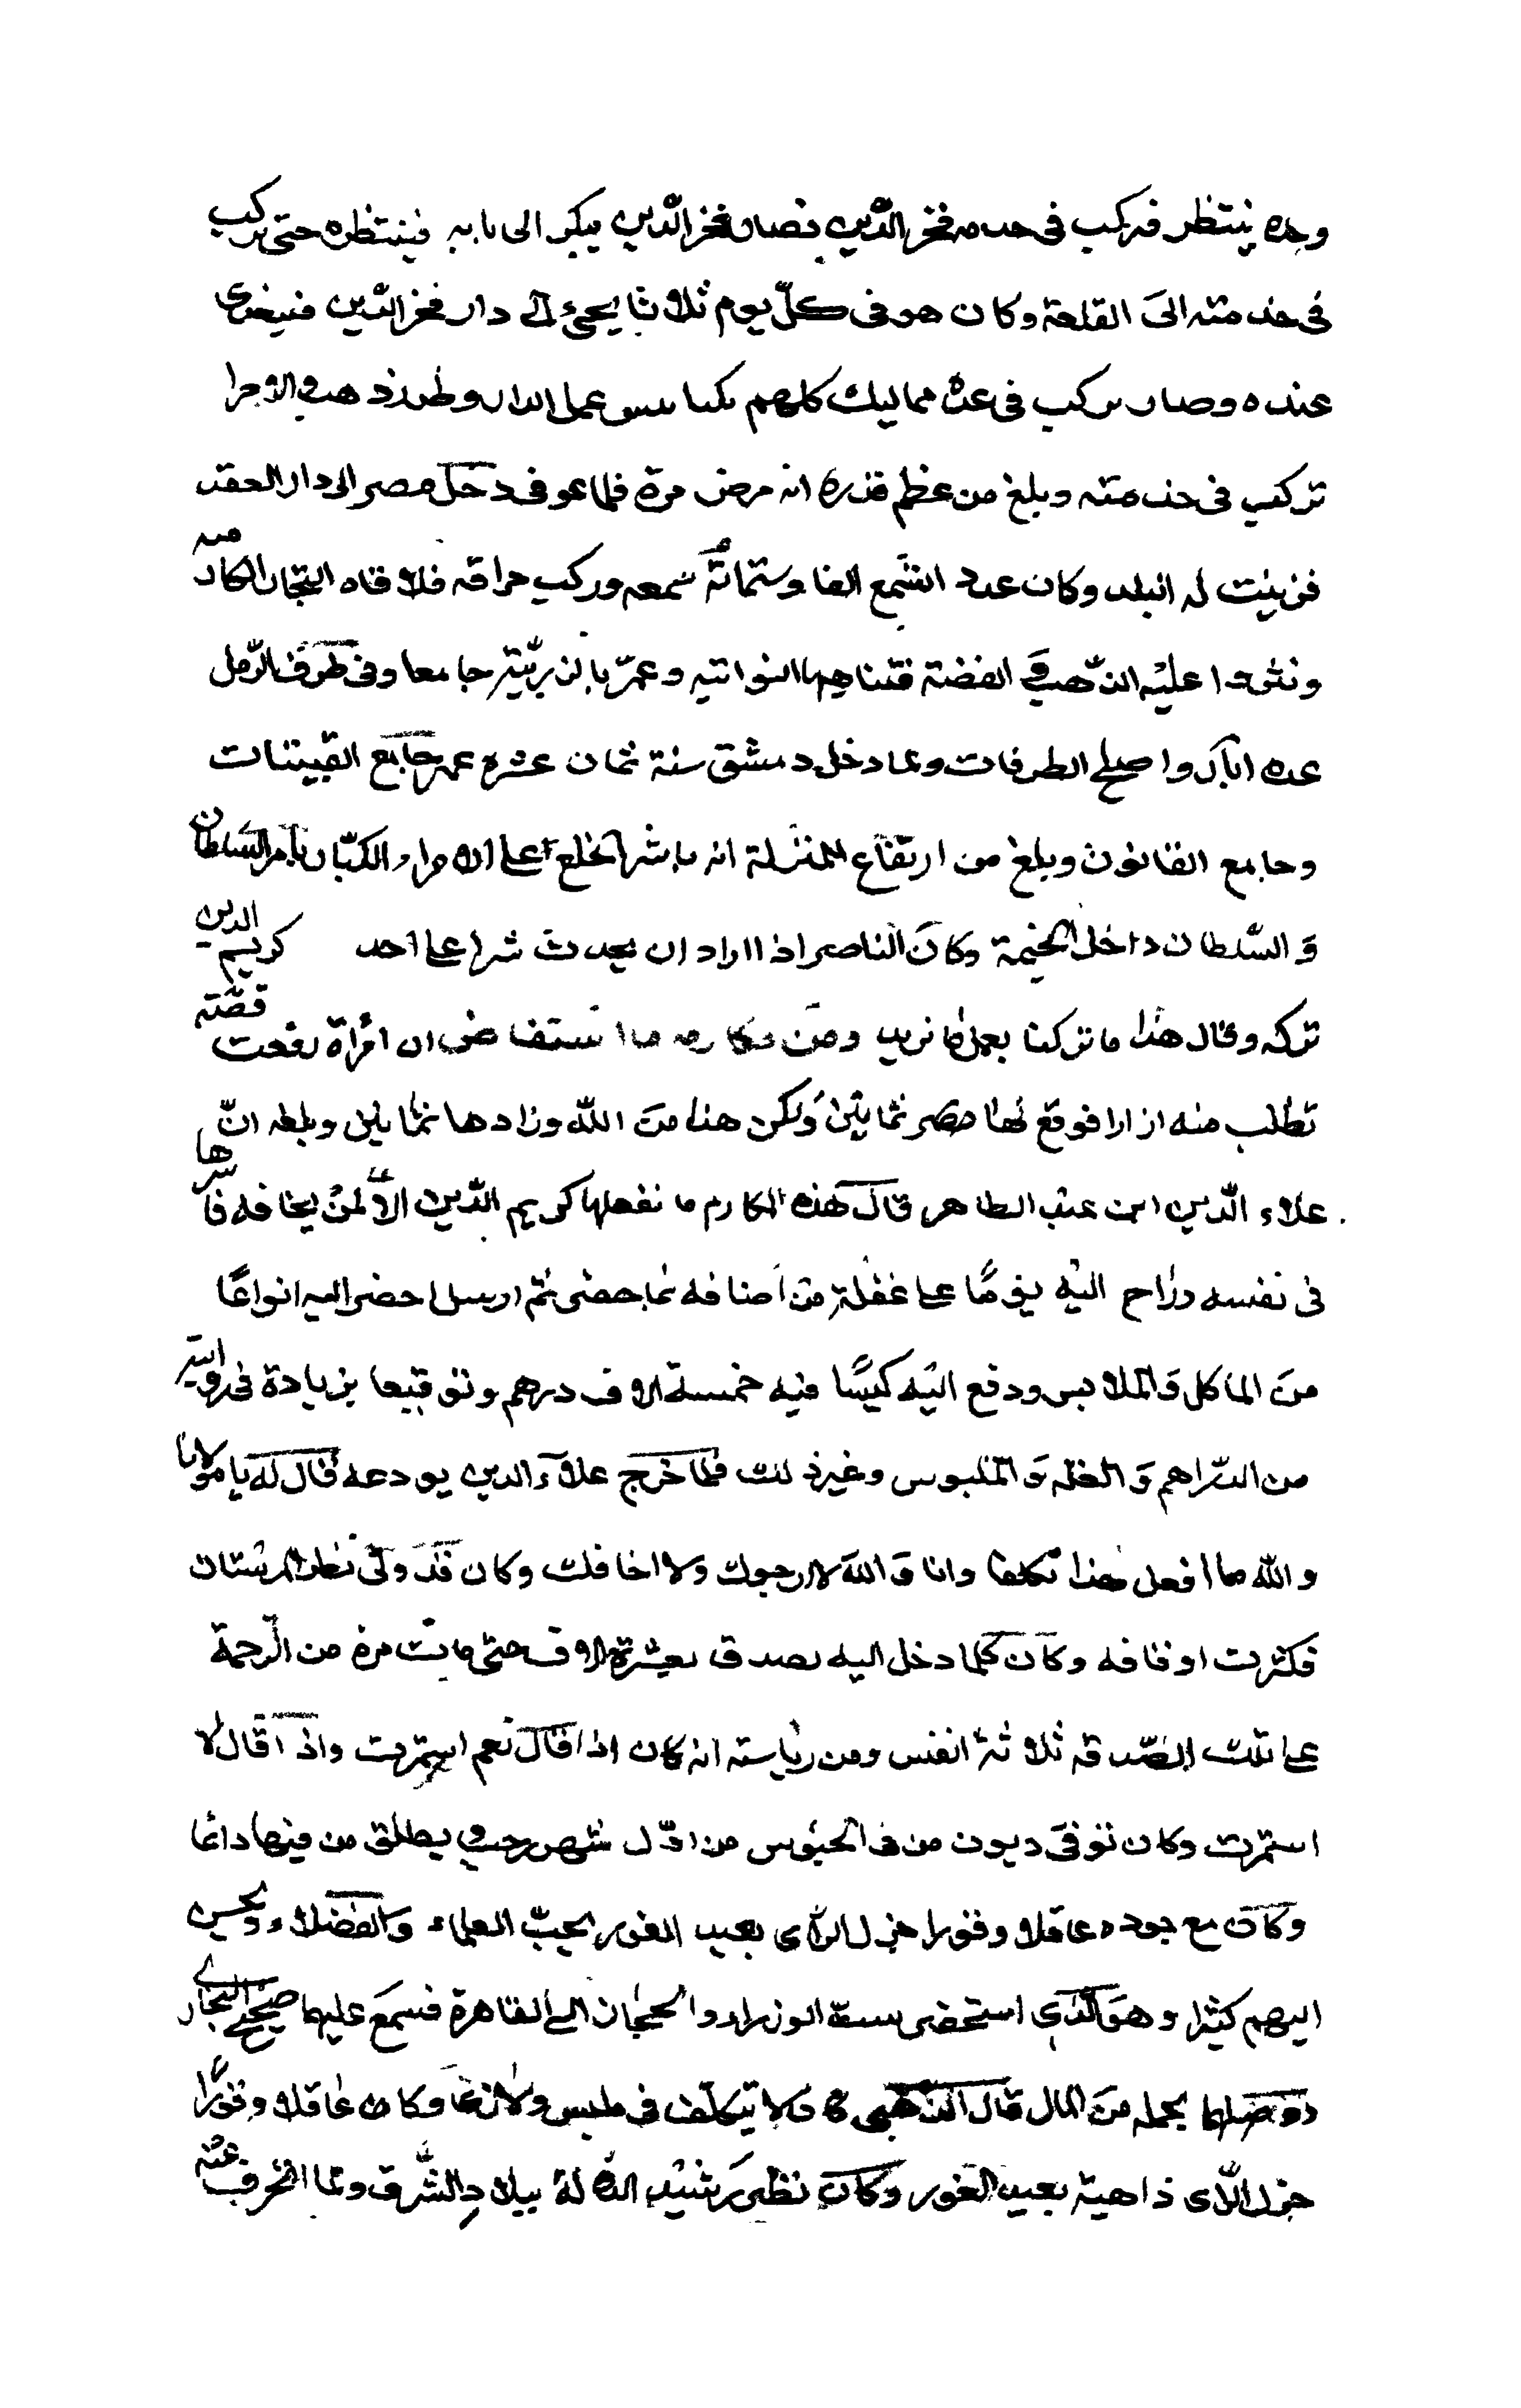 وحده ينتظر فركب في خدمه فخر الدّين فصار فخر الدين يبكر الى بابه فينتظره حتى يركب
في خدمته الى القلعة وكان هو في كلّ يوم ثلاثا يجيء الى دار فخر الدّين فيتغدى
عنده وصار يركب في عدة مماليك كلهم بكنابيس عمل الدار وطرز ذهب والامرا
تركب في خدمته وبلغ من عظم قدره انه مرض مرة فلما عوفي دخل مصر الى دار العقد
فزينت له البلد وكان عدد الشمع الفا وستمائة شمعه وركب حراقه فلاقاه التجار الكارمية
ونثروا عليه الذّهب والفضة فتناهبها النواتيه وعمّر بالزربيّة جامعا وفي طرف الرّمل
عده ابآر واصلح الطرقات ولما دخل دمشق سنة ثمان عشره عمر جامع القبيبات
وجامع القابون وبلغ من ارتفاع المنزلة انه باشر الخلع على الامراء الكبار بامر السلطان
والسّلطان داخل الخيمة وكان الناصر اذا اراد ان يحدث شرا على احد كريم الدين
تركه وقال هذا ما تركنا نعمل ما نريد ومن مكارمه ما استفاض ان امرأة رفعت قصّته
تطلب منه ازارا فوقع لها مصر ثمانين ولكن هذا من الله وزادها ثمانين وبلغه انّ
علاء الدّين ابن عبد الظاهر قال هذه المكارم ما نفعلها كريم الدّين الّا لمن يخافه فاسرها
في نفسه وراح اليه يومًا على غفلة من اضافه بما حضر ثم ارسل احضر اليه انواعًا
من الماكل والملابس ودفع اليه كيسًا فيه خمسة الاف درهم وتوقيعا بزيادة في رواتبه
من الدّراهم والغله والملبوس وغير ذلك فلما خرج علاء الدين يودعه قال له يا مولانا
والله ما افعل هذا تكلفا وانا والله لا ارجوك ولا اخافك وكان قد ولّي نظر المرستان
فكثرت اوقافه وكان كلما دخل اليه تصدق بعشرة الاف حتى مات مرة من الرّحمة
على تلك الصّدقه ثلاثة انفس ومن رياسته انه كان اذا قال نعم استمرت واذا قال لا
استمرت وكان توفى ديون من في الحبوس من اوّل شهر رجب ويطلق من فيها دائما
وكان مع جوده عاقلا وقورا جزل الرّأي بعيد الغور يحبّ العلماء والفضلاء ويحسن
اليهم كثيرا وهو الذي استحضر ستّ الوزراء والحجار الى القاهرة فسمع عليهما صحيح البخاري
ووصلهما بجمله من المال قال الذهبي كان لا يتكلّف في ملبس ولا زي وكان عاقلا وقورًا
جزل الرّأي ذاهية بعيد الغور وكان نظير رشيد الدّوله ببلاد الشّرق ولما انحرف عنه